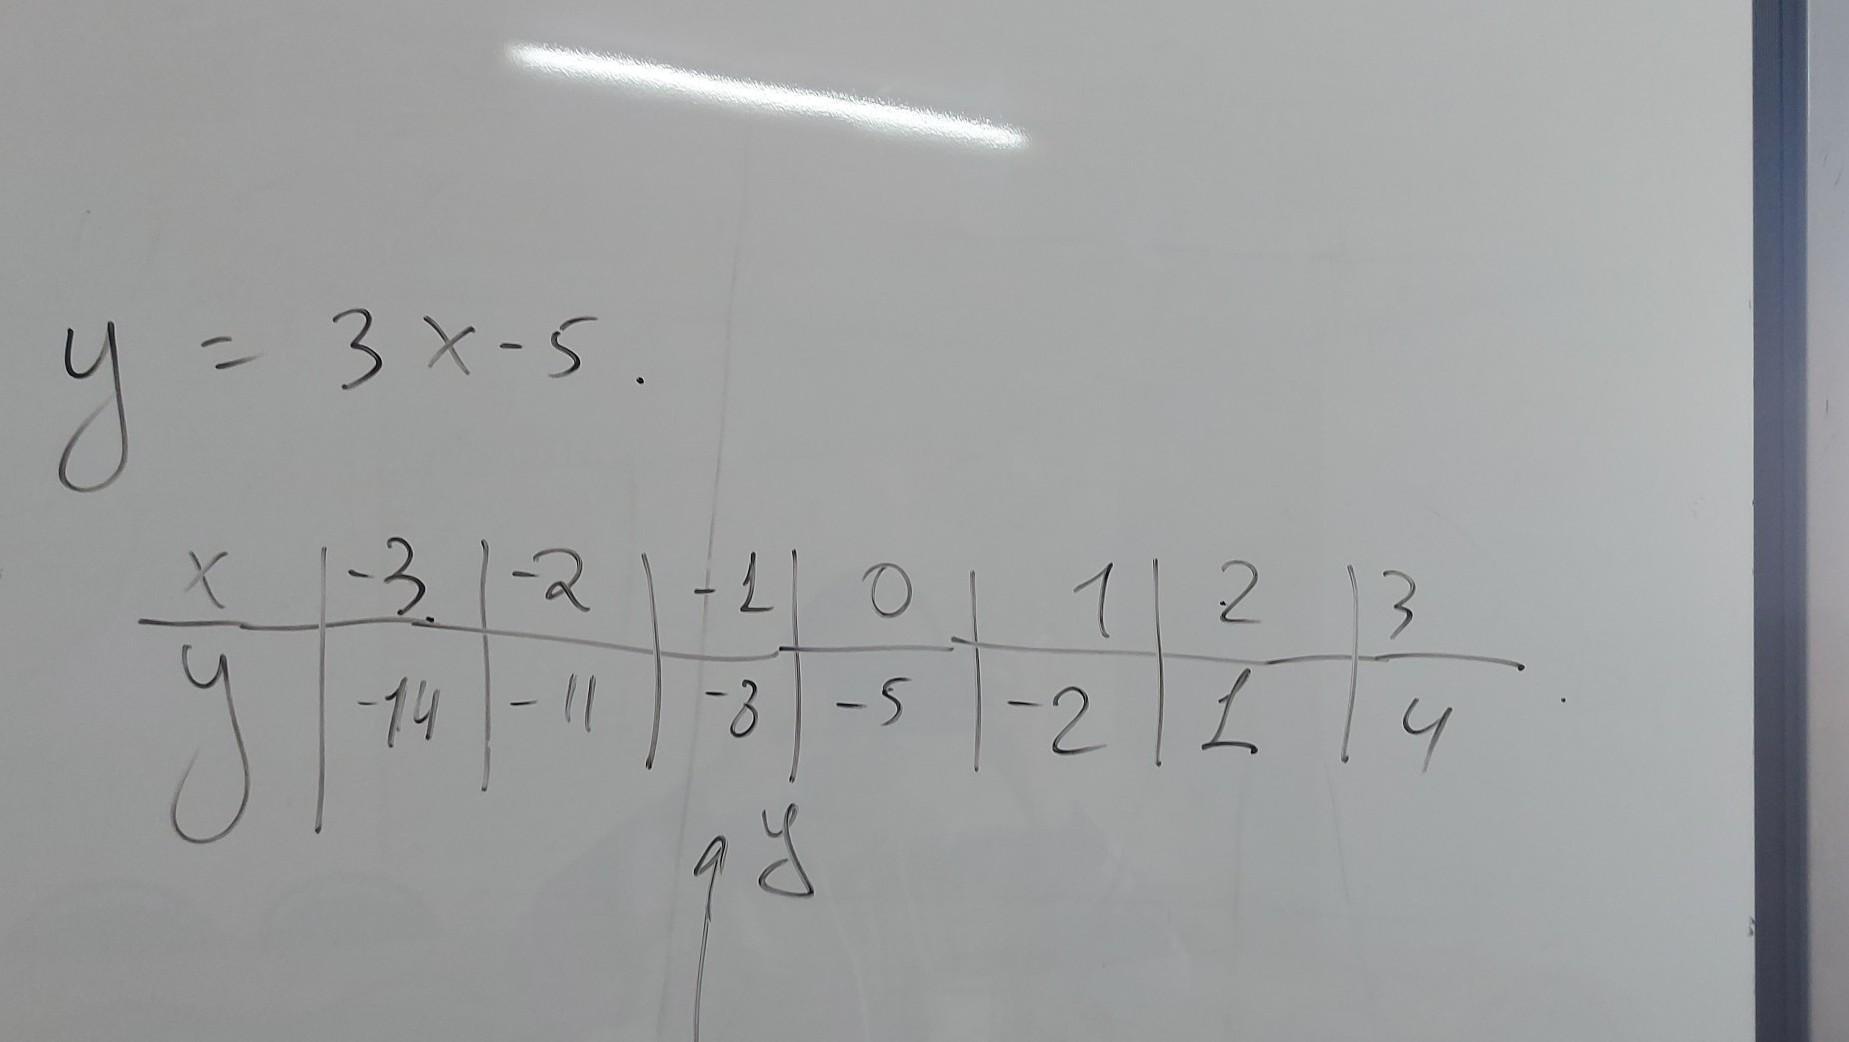 y = 3x-5.
x | -3 | -2 | -1 | 0 | 1 | 2 | 3
y | -14 | -11 | -8 | -5 | -2 | 1 | 4
y